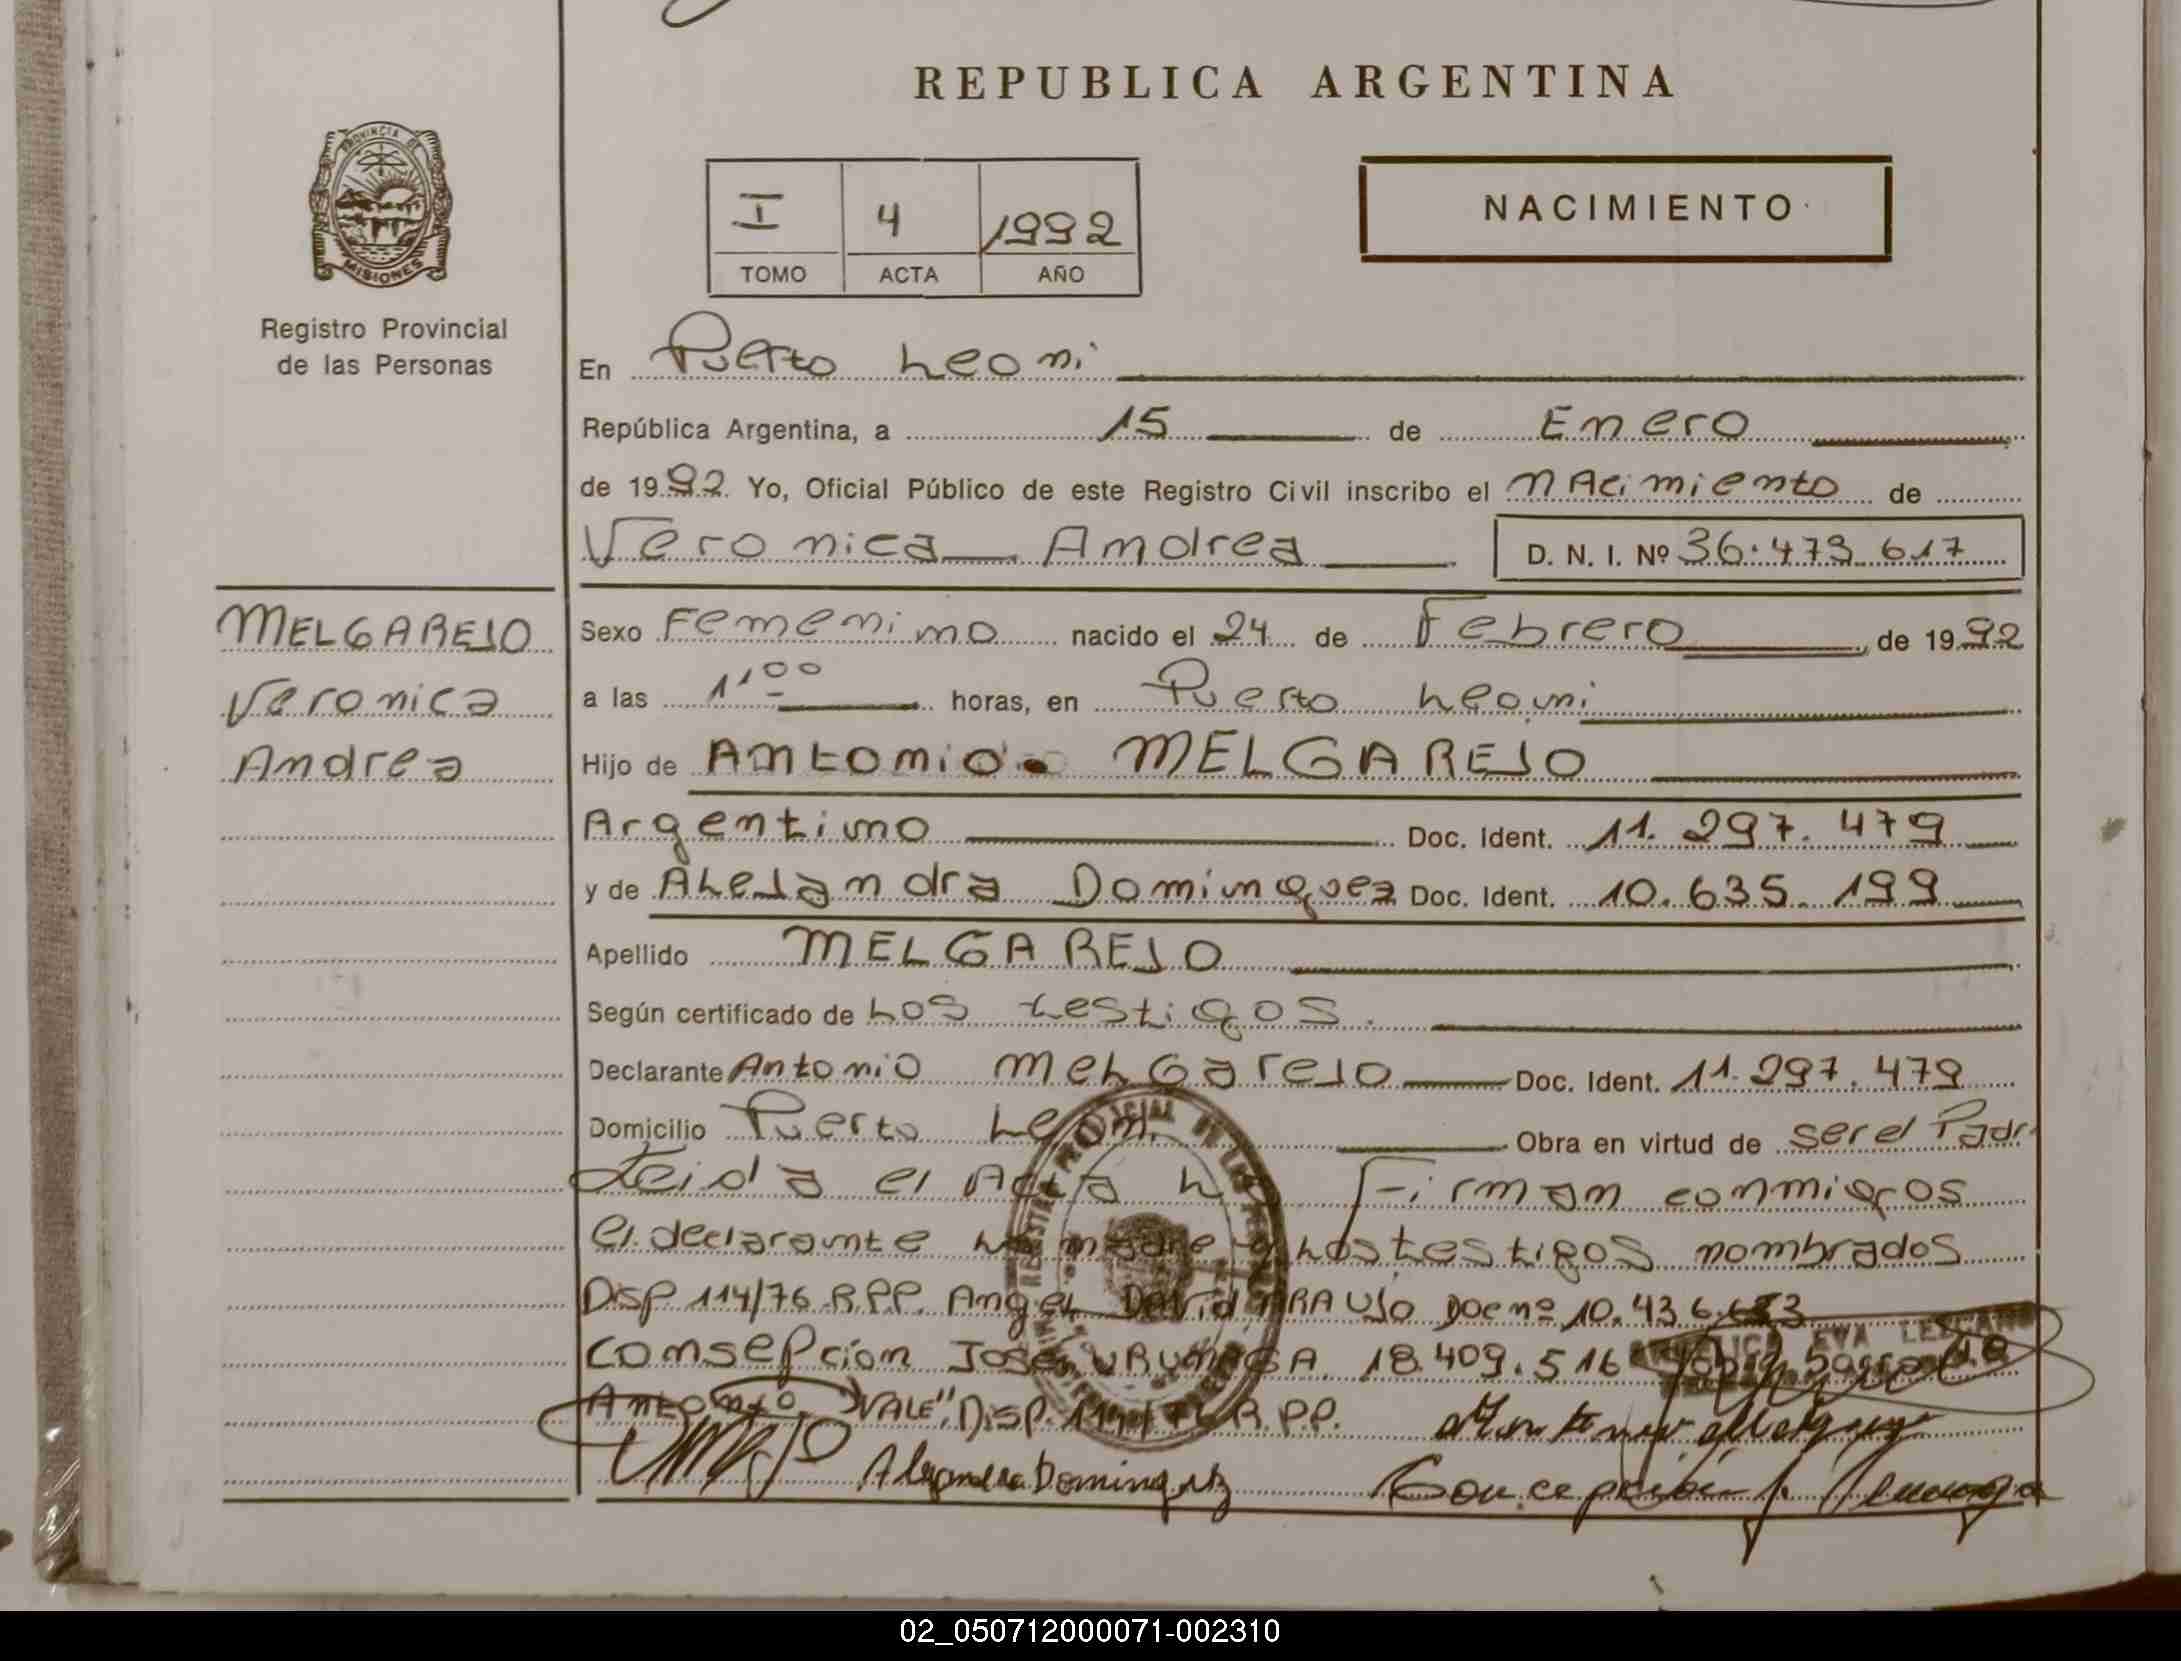 REPUBLICA ARGENTINA
PROVINCIA DE
MISIONES
Registro Provincial
de las Personas
I 4 1992
TOMO ACTA AÑO
NACIMIENTO
En Puerto Leoni
República Argentina, a 15 de Enero
de 1992 Yo, Oficial Público de este Registro Civil inscribo el nAcimiento de
Veronica Andrea D. N. I. Nº 36.479.617
MELGAREJO
Veronica
Andrea
Sexo Femenino nacido el 24 de Febrero de 1992
a las 11 00 horas, en Puerto Leoni
Hijo de Antonio MELGAREJO
Argentino Doc. Ident. 11.297.479
y de ALeJandra Dominguez Doc. Ident. 10.635.199
Apellido MELGAREJO
Según certificado de Los testigos.
Declarante Antonio MeLGareJo Doc. Ident. 11.297.479
Domicilio Puerto Leoni Obra en virtud de ser el Padr
Leida el Acta La Firman conmigos
el declarante La madre y Los testigos nombrados
Disp 114/76 R.P.P. AngeL David ARAUJO Doc nº 10.436.
Consepcion Jose URUNAGA. 18.409.516
Antonio "VALE", Disp. 114/76 R.P.P.
Alejandra Dominguez
Concepción J.
02_050712000071-002310